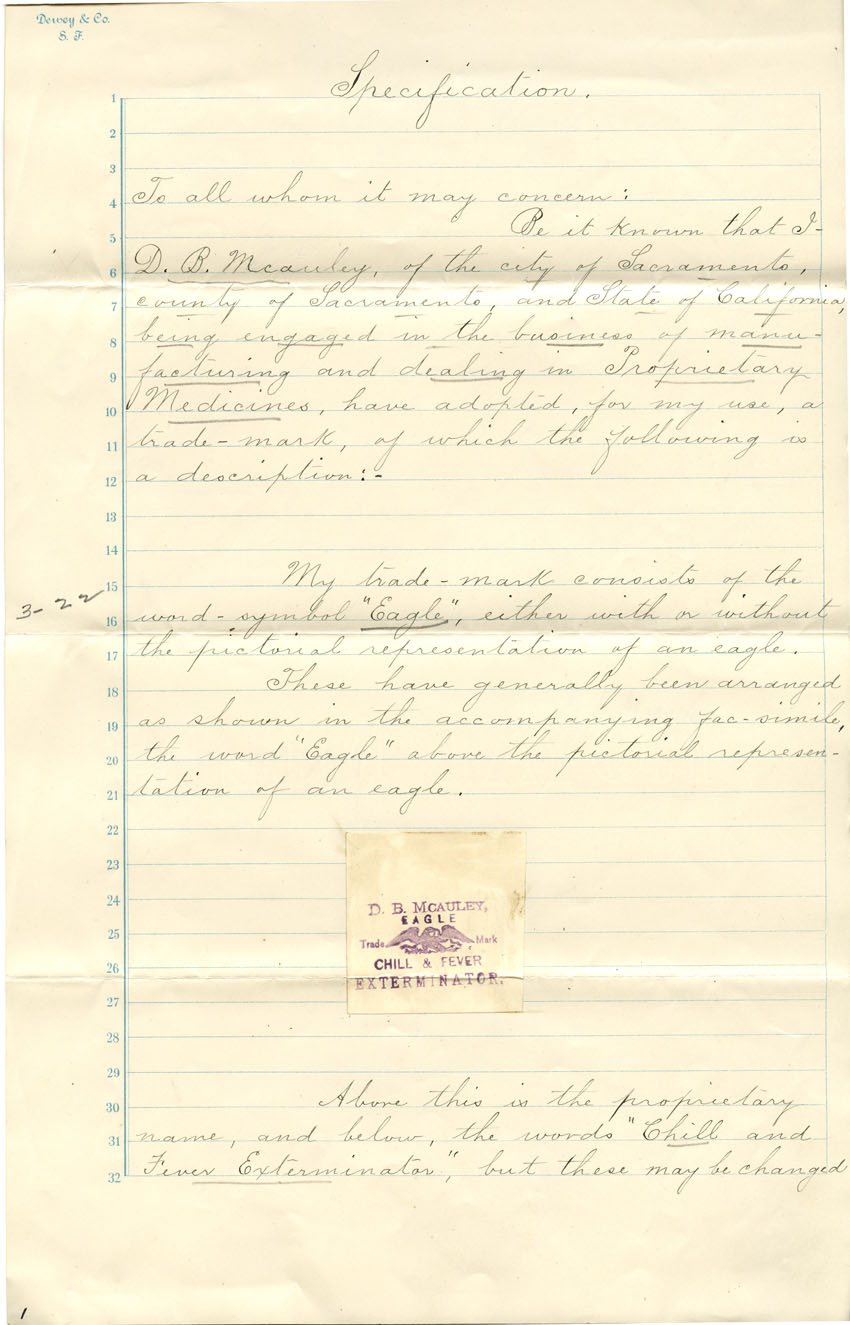 Dewey & Co.
S. F.
Specification.
1
2
3
4 To all whom it may concern:
5 Be it known that I-
6 D. B. Mcauley, of the city of Sacramento,
7 county of Sacramento, and State of California,
8 being engaged in the business of manu-
9 facturing and dealing in Proprietary
10 Medicines, have adopted, for my use, a
11 trade-mark, of which the following is
12 a description:-
13
14
15 My trade-mark consists of the
3-22
16 word-symbol "Eagle", either with or without
17 the pictorial representation of an eagle.
18 These have generally been arranged
19 as shown in the accompanying fac-simile,
20 the word "Eagle" above the pictorial represen-
21 tation of an eagle.
22
23
24
D. B. MCAULEY,
25
EAGLE
Trade Mark
26
CHILL & FEVER
EXTERMINATOR.
27
28
29
30 Above this is the proprietary
31 name, and below, the words "Chill and
32 Fever Exterminator", but these may be changed
1